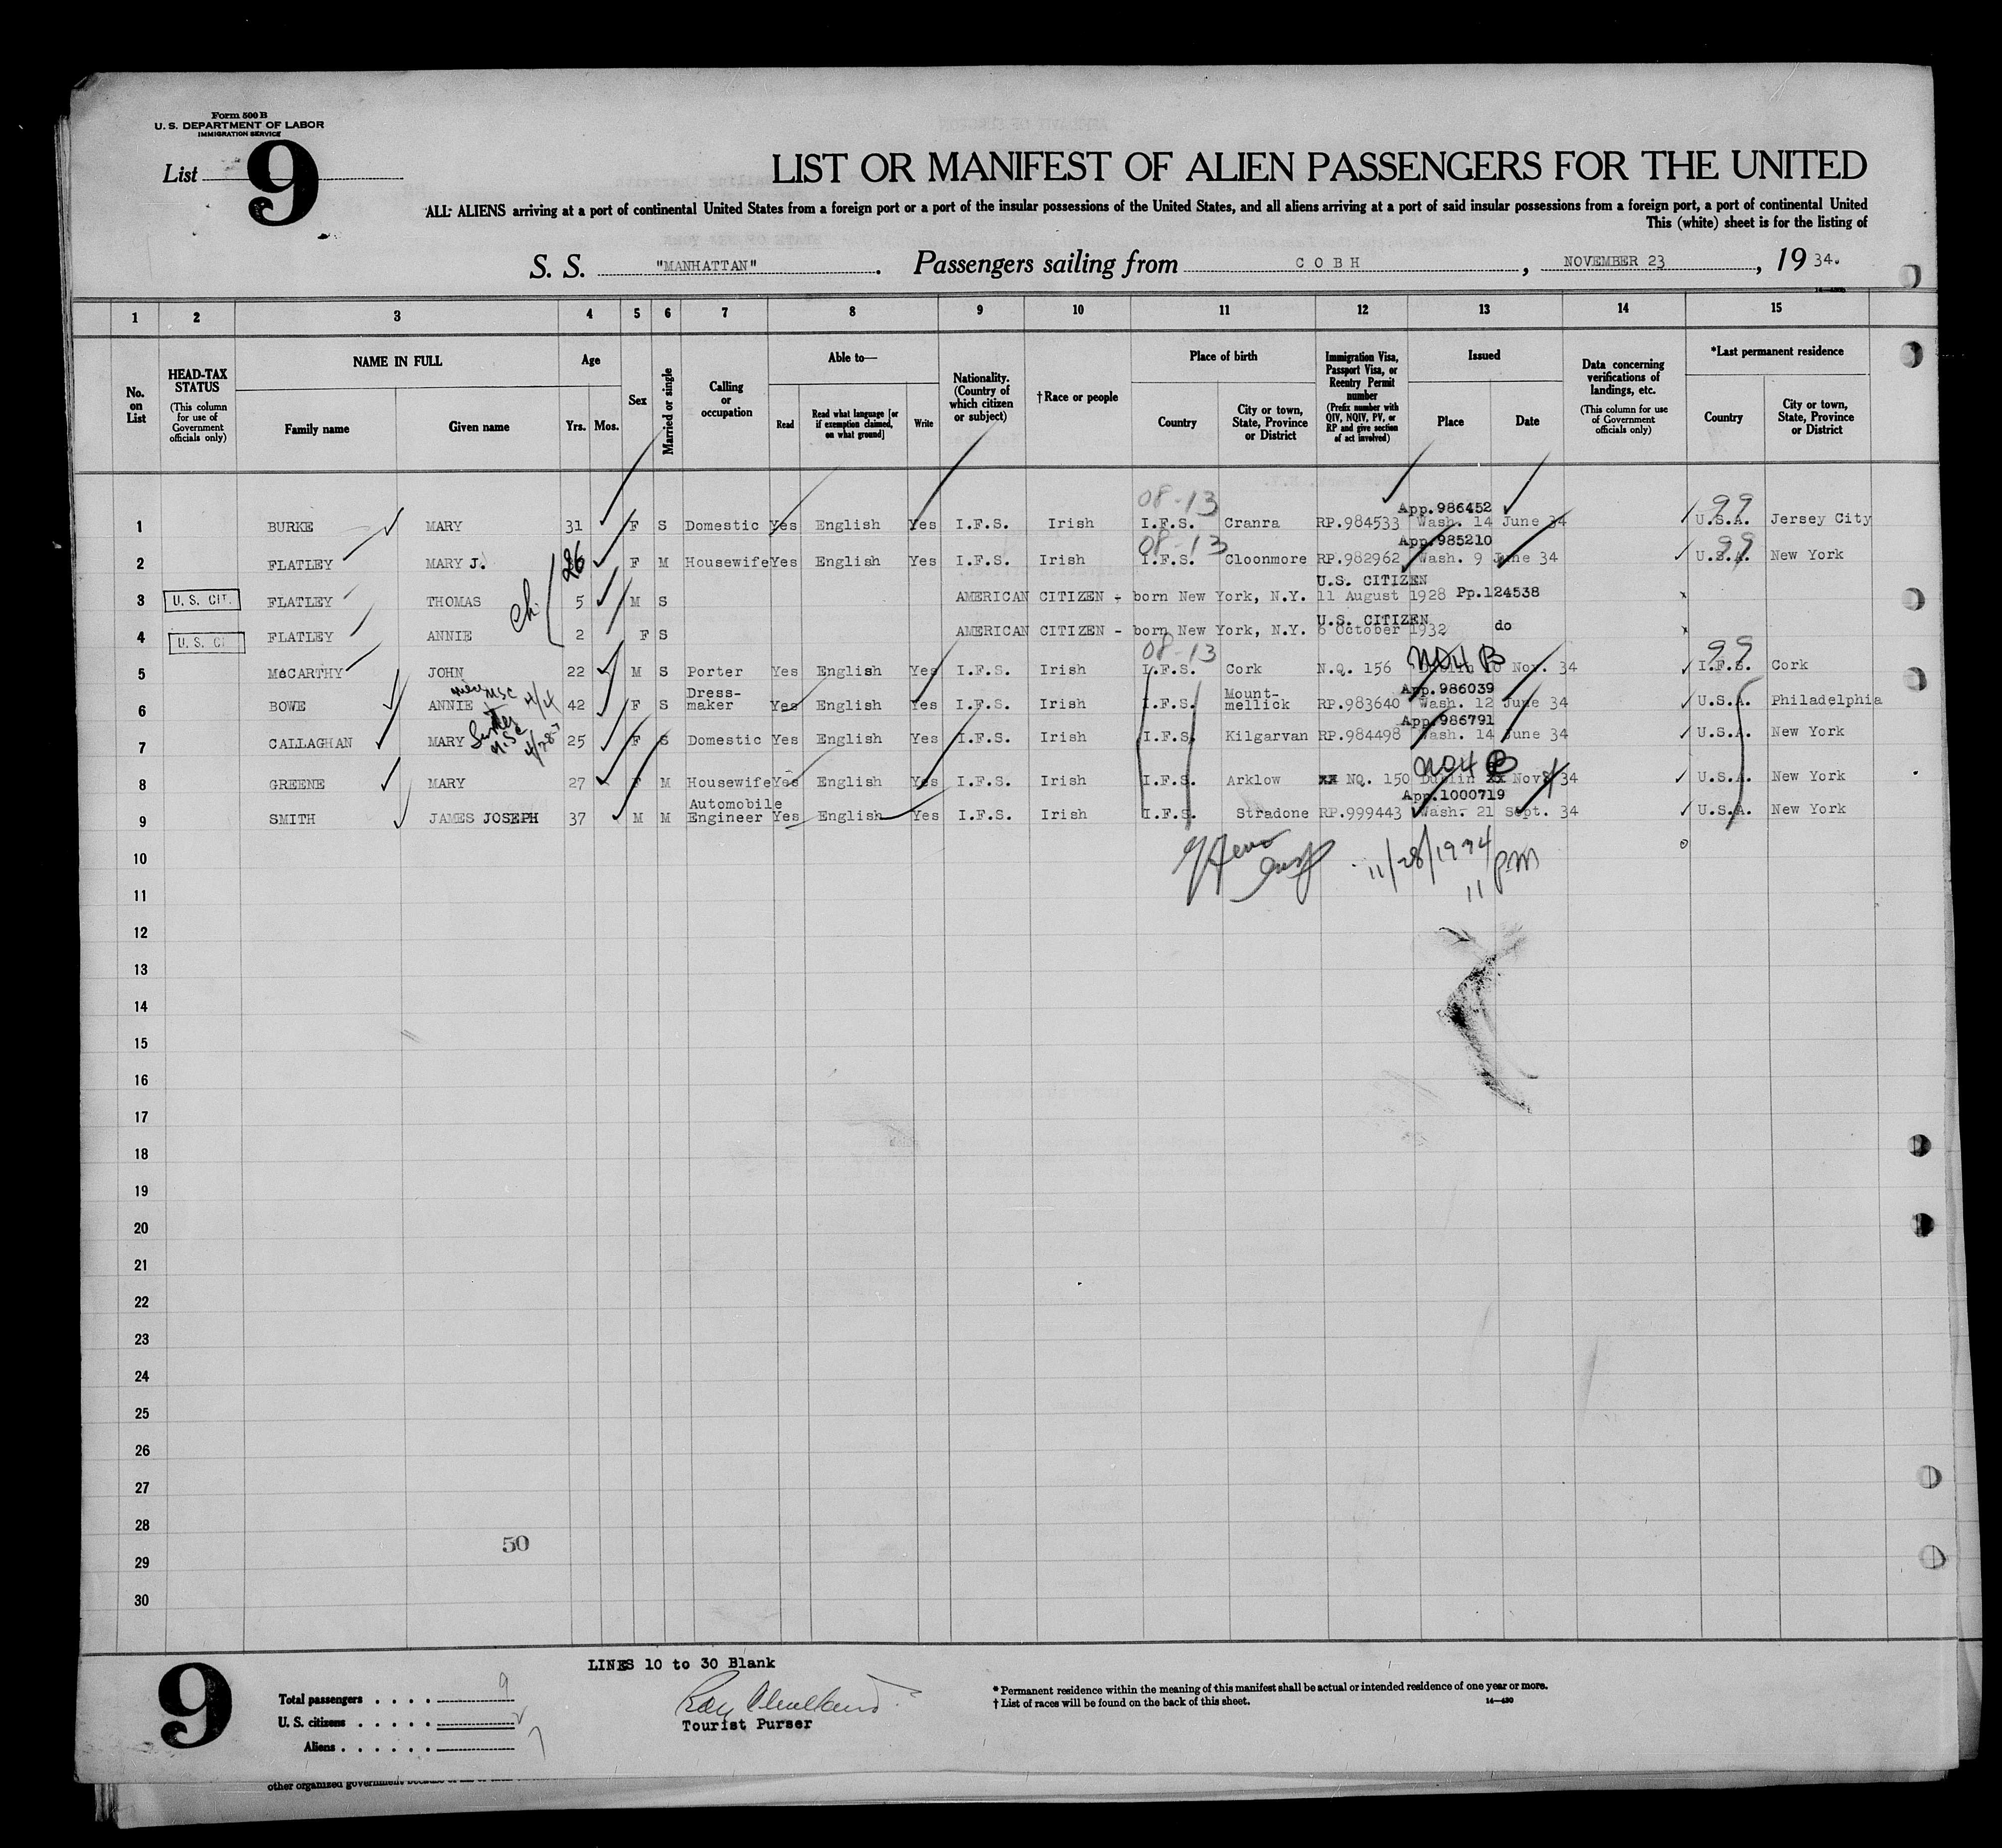 Form 500 B
U. S. DEPARTMENT OF LABOR
IMMIGRATION SERVICE
List 9
LIST OR MANIFEST OF ALIEN PASSENGERS FOR THE UNITED
ALL ALIENS arriving at a port of continental United States from a foreign port or a port of the insular possessions of the United States, and all aliens arriving at a port of said insular possessions from a foreign port, a port of continental United
This (white) sheet is for the listing of
S. S. "MANHATTAN". Passengers sailing from COBH, NOVEMBER 23, 1934.
1 2 3 4 5 6 7 8 9 10 11 12 13 14 15
No. on List
HEAD-TAX STATUS (This column for use of Government officials only)
NAME IN FULL
Family name
Given name
Age
Yrs. Mos.
Sex
Married or single
Calling or occupation
Able to—
Read
Read what language [or if exemption claimed, on what ground]
Write
Nationality. (Country of which citizen or subject)
†Race or people
Place of birth
Country
City or town, State, Province or District
Immigration Visa, Passport Visa, or Reentry Permit number (Prefix number with QIV, NQIV, PV, or RP and give section of act involved)
Issued
Place
Date
Data concerning verifications of landings, etc. (This column for use of Government officials only)
*Last permanent residence
Country
City or town, State, Province or District
08-13 App.986452 99
1 BURKE MARY 31 F S Domestic Yes English Yes I.F.S. Irish I.F.S. Cranra RP.984533 Wash. 14 June 34 U.S.A. Jersey City
08-13 App.985210 99
2 FLATLEY MARY J. 26 F M Housewife Yes English Yes I.F.S. Irish I.F.S. Cloonmore RP.982962 Wash. 9 June 34 U.S.A. New York
U.S. CITIZEN
3 U. S. CIT. FLATLEY THOMAS ch 5 M S AMERICAN CITIZEN - born New York, N.Y. 11 August 1928 Pp.124538
U.S. CITIZEN
4 U. S. CI FLATLEY ANNIE 2 F S AMERICAN CITIZEN - born New York, N.Y. 6 October 1932 do
08-13 NO4 B 99
5 McCARTHY JOHN 22 M S Porter Yes English Yes I.F.S. Irish I.F.S. Cork N.Q. 156 Dublin 10 Nov. 34 I.F.S. Cork
App.986039
6 BOWE ANNIE 42 F S Dress-maker Yes English Yes I.F.S. Irish I.F.S. Mount-mellick RP.983640 Wash. 12 June 34 U.S.A. Philadelphia
App.986791
7 CALLAGHAN MARY 25 F S Domestic Yes English Yes I.F.S. Irish I.F.S. Kilgarvan RP.984498 Wash. 14 June 34 U.S.A. New York
NO4 B
8 GREENE MARY 27 F M Housewife Yes English Yes I.F.S. Irish I.F.S. Arklow NQ. 150 Dublin Nov 34 U.S.A. New York
App.1000719
9 SMITH JAMES JOSEPH 37 M M Automobile Engineer Yes English Yes I.F.S. Irish I.F.S. Stradone RP.999443 Wash. 21 Sept. 34 U.S.A. New York
10
11/28/1934
11 pm
11
12
13
14
15
16
17
18
19
20
21
22
23
24
25
26
27
28
50
29
30
LINES 10 to 30 Blank
9
Total passengers . . . . 9
U. S. citizens . . . . . 2
Aliens . . . . . . 7
Tourist Purser
* Permanent residence within the meaning of this manifest shall be actual or intended residence of one year or more.
† List of races will be found on the back of this sheet.
14—430